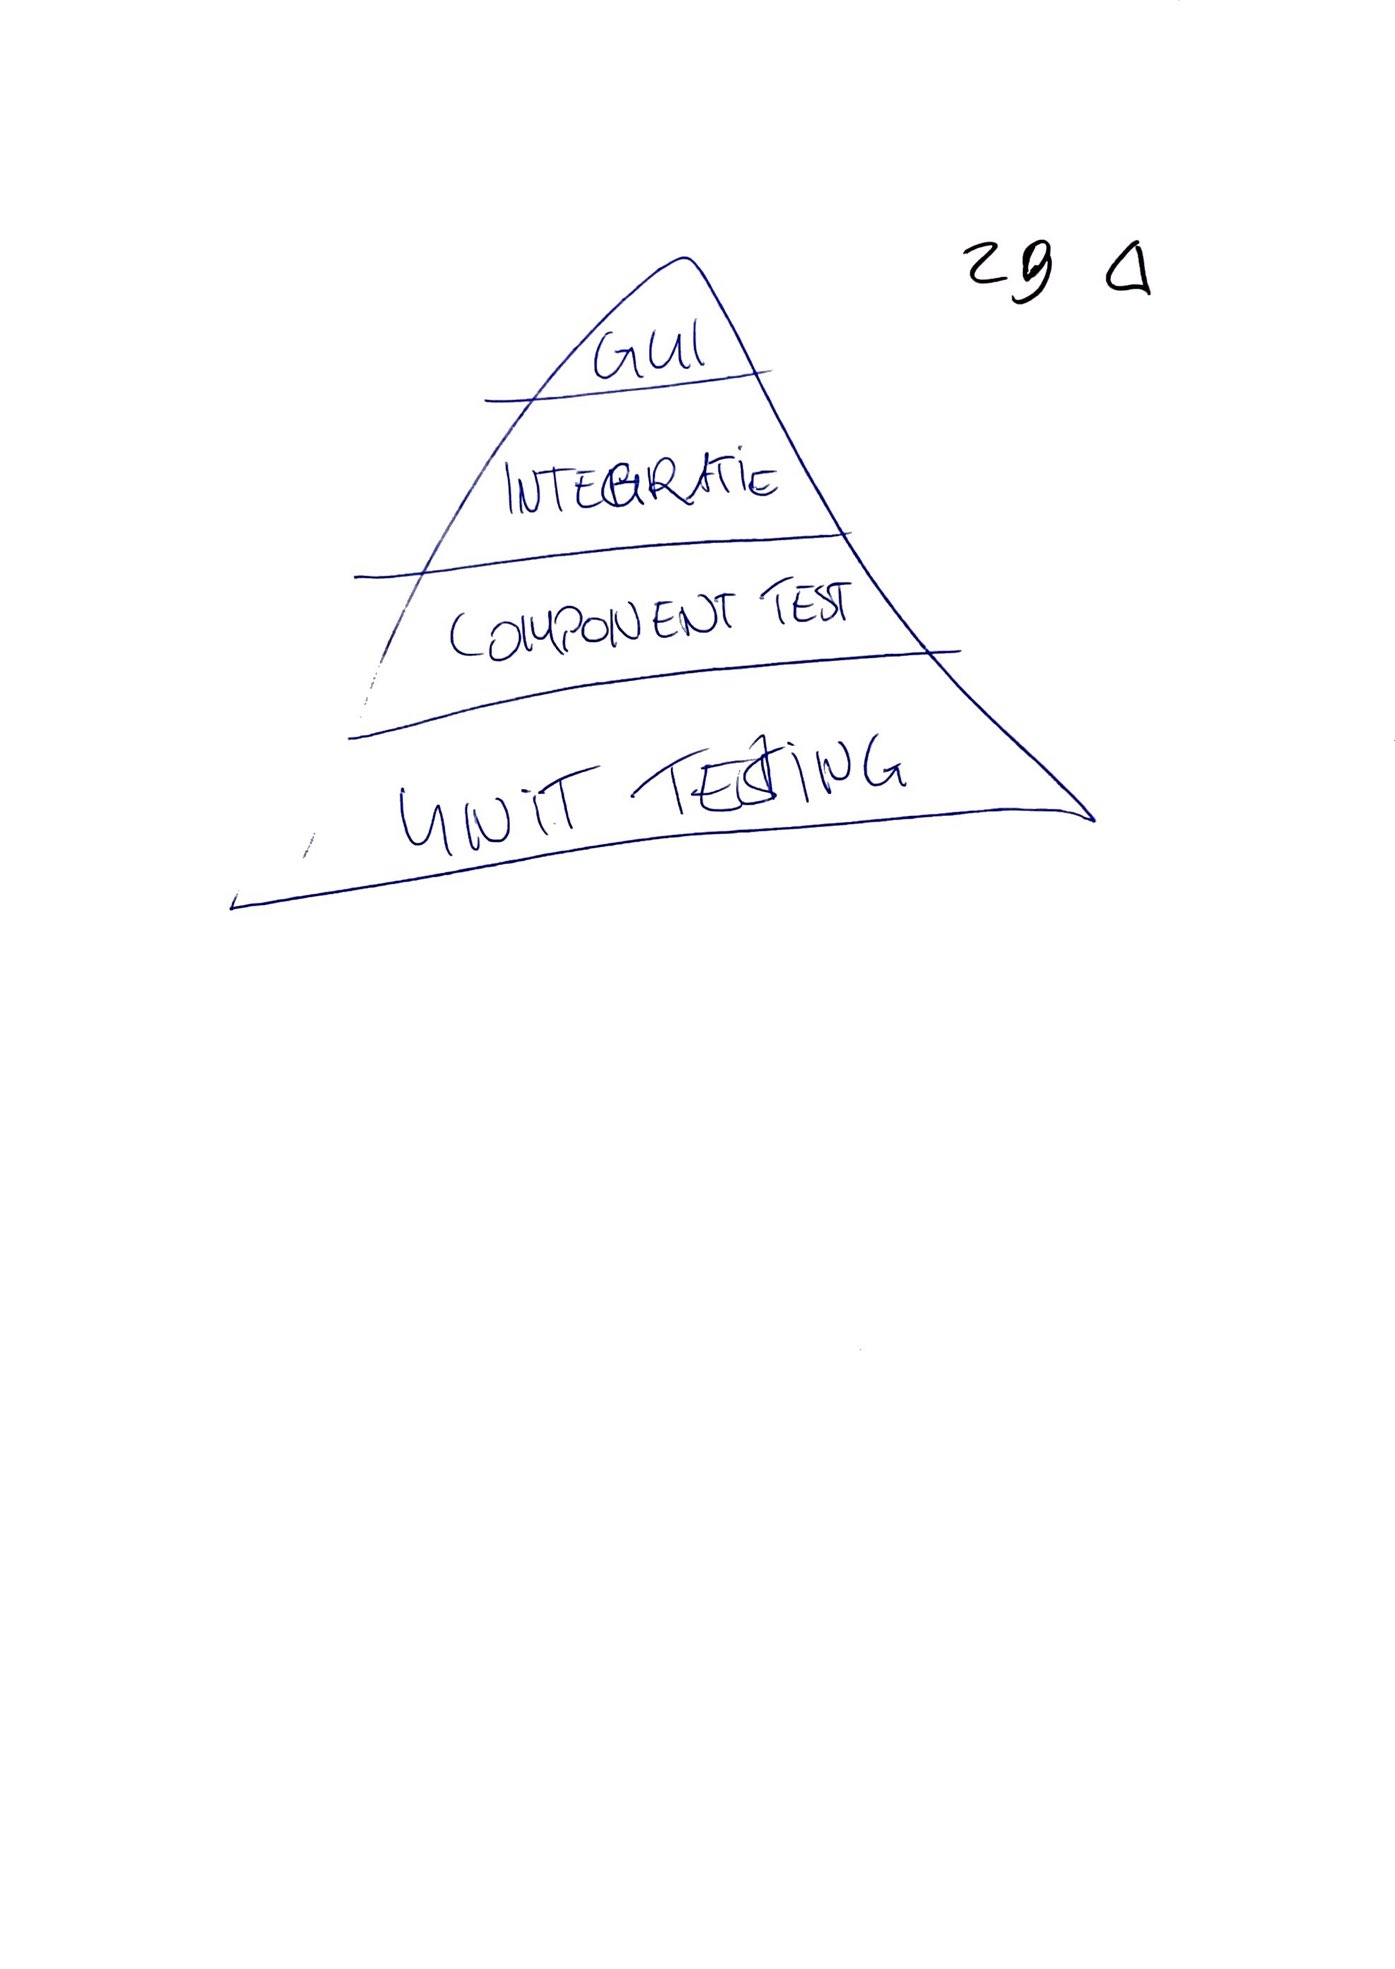 29 Δ
GUI
INTEGRATIE
COMPONENT TEST
UNIT TESTING